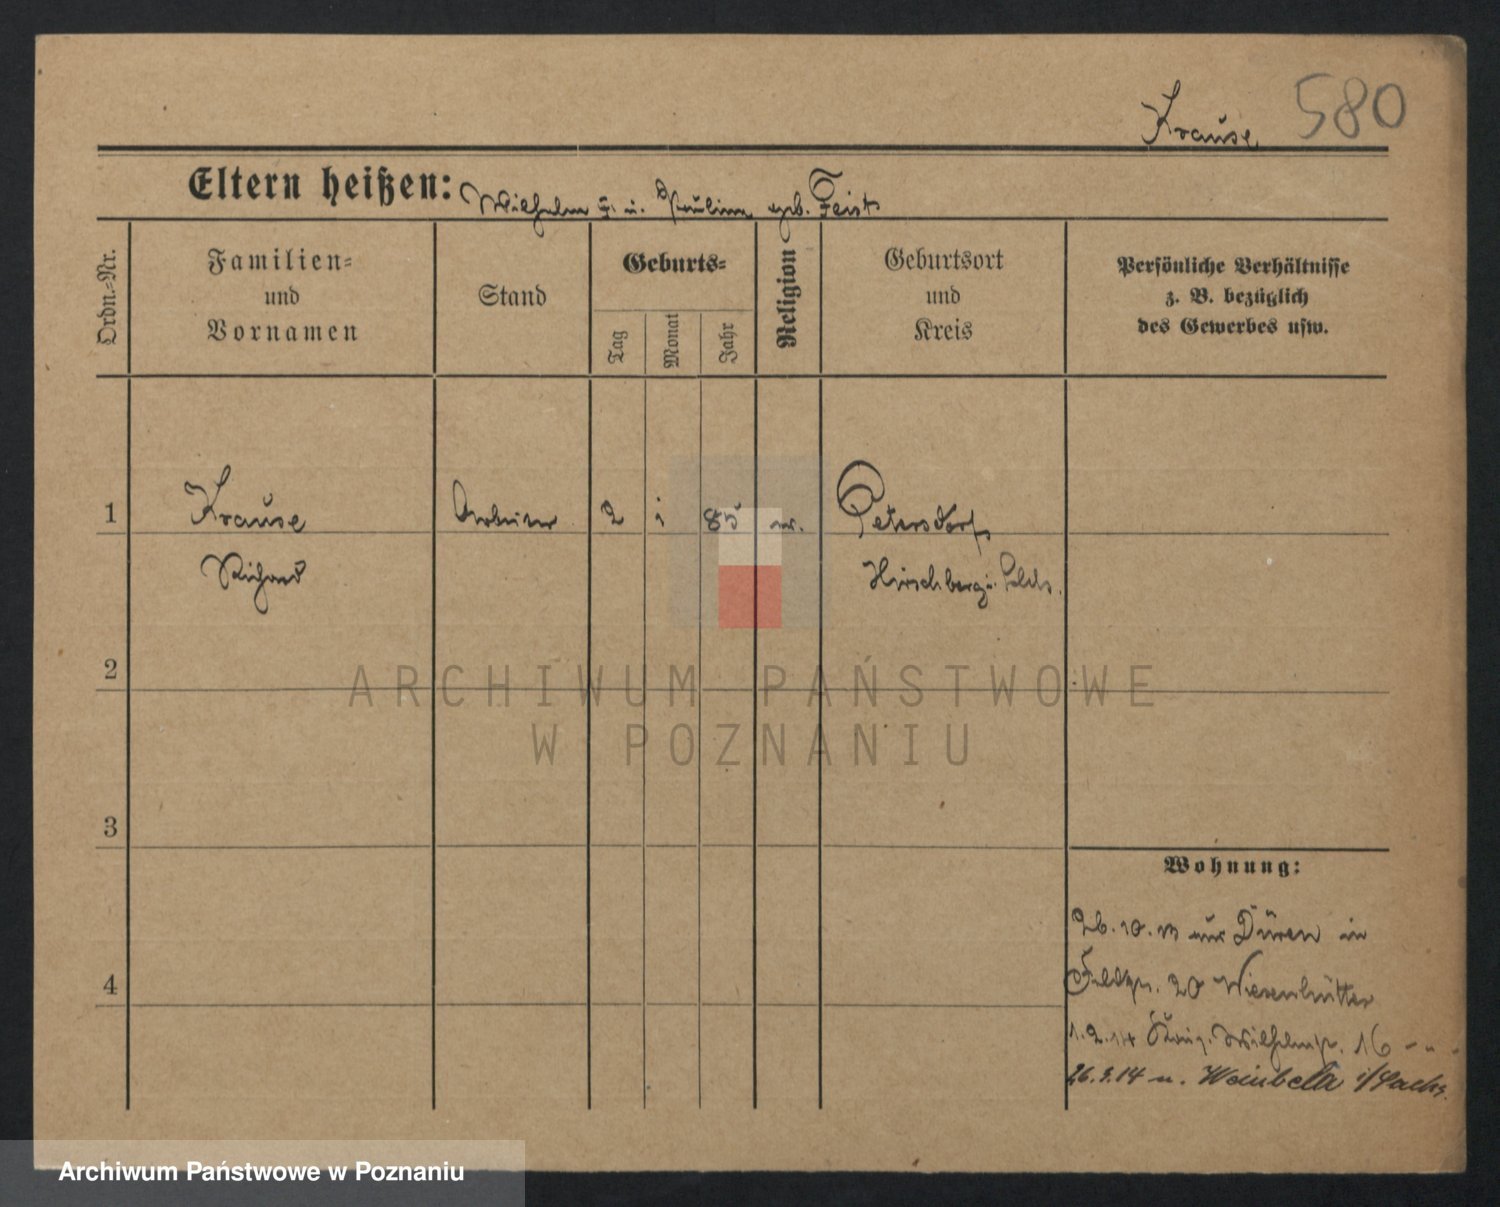 Krause 580
Eltern heißen: Wilhelm u. Pauline geb. Feist
Ordn.-Nr.
Familien- und Vornamen
Stand
Geburts-
Tag
Monat
Jahr
Religion
Geburtsort und Kreis
Persönliche Verhältnisse
z. B. bezüglich
des Gewerbes usw.
1 Krause Arbeiter 2 1 85 ev. Petersdorf
Richard Hirschberg i. Schls.
2
3
4
Wohnung:
26. 10. 13 aus Düren in
Feldstr. 20 Wiesenhütter
1. 2. 14 König. Wilhelmstr. 16 - " -
26. 3. 14 n. Weinböhla i/Sachs.
ARCHIWUM PAŃSTWOWE
W POZNANIU
Archiwum Państwowe w Poznaniu